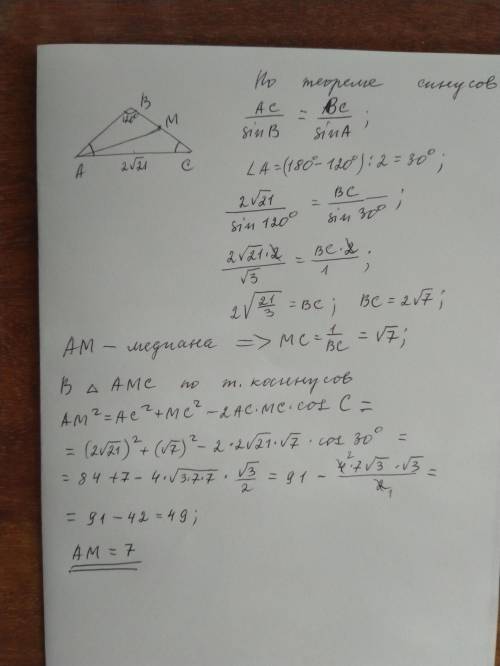 По теореме синусов
B
120°
M
A
2√21
C
AC/sinB = BC/sinA ;
∠A=(180°−120°):2=30°;
2√21/sin 120° = BC/sin 30° ;
2√21·2/√3 = BC·2/1 ;
2√(21/3) = BC ; BC=2√7 ;
AM – медиана => MC = 1/BC = √7;
В △ AMC по т. косинусов
AM² = AC² + MC² − 2AC·MC·cos C =
= (2√21)² + (√7)² − 2·2√21·√7 · cos 30° =
= 84 + 7 − 4·√(3·7·7) · √3/2 = 91 − 4²·7√3·√3/2₁ =
= 91 − 42 = 49;
AM = 7